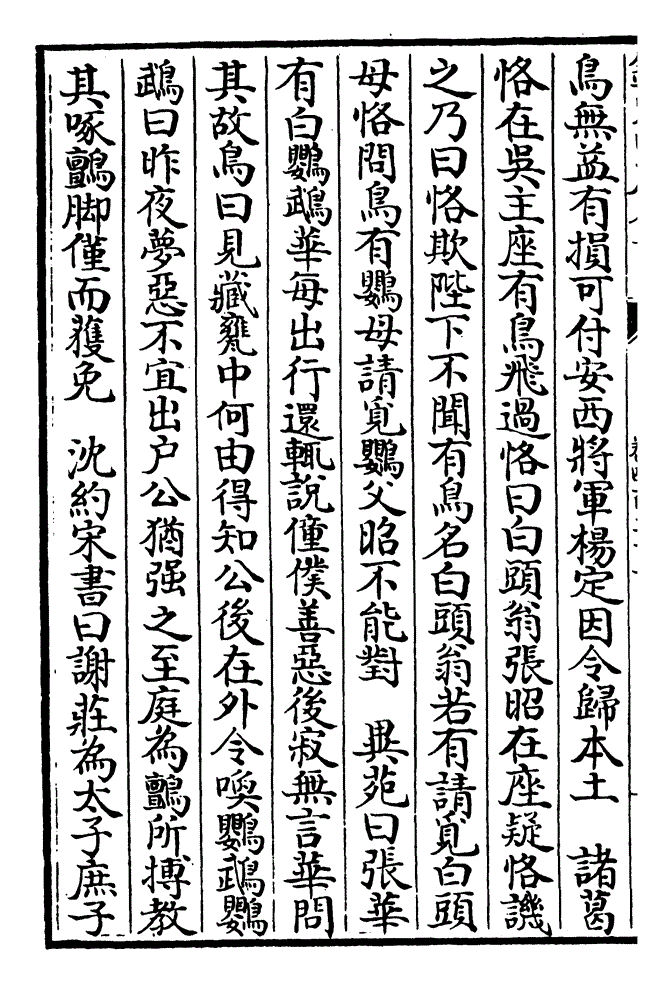 鳥無益有損可付安西將軍楊定因令歸本土　諸葛
恪在吳主座有鳥飛過恪曰白頭翁張昭在座疑恪譏
之乃曰恪欺陛下不聞有鳥名白頭翁若有請覓白頭
母恪問鳥有鸚母請覓鸚父昭不能對　異苑曰張華
有白鸚鵡華每出行還輒說僮僕善惡後寂無言華問
其故鳥曰見藏甕中何由得知公後在外令喚鸚鵡鸚
鵡曰昨夜夢惡不宜出户公猶强之至庭為鸇所搏教
其啄鸇脚僅而獲免　沈約宋書曰謝莊為太子庶子